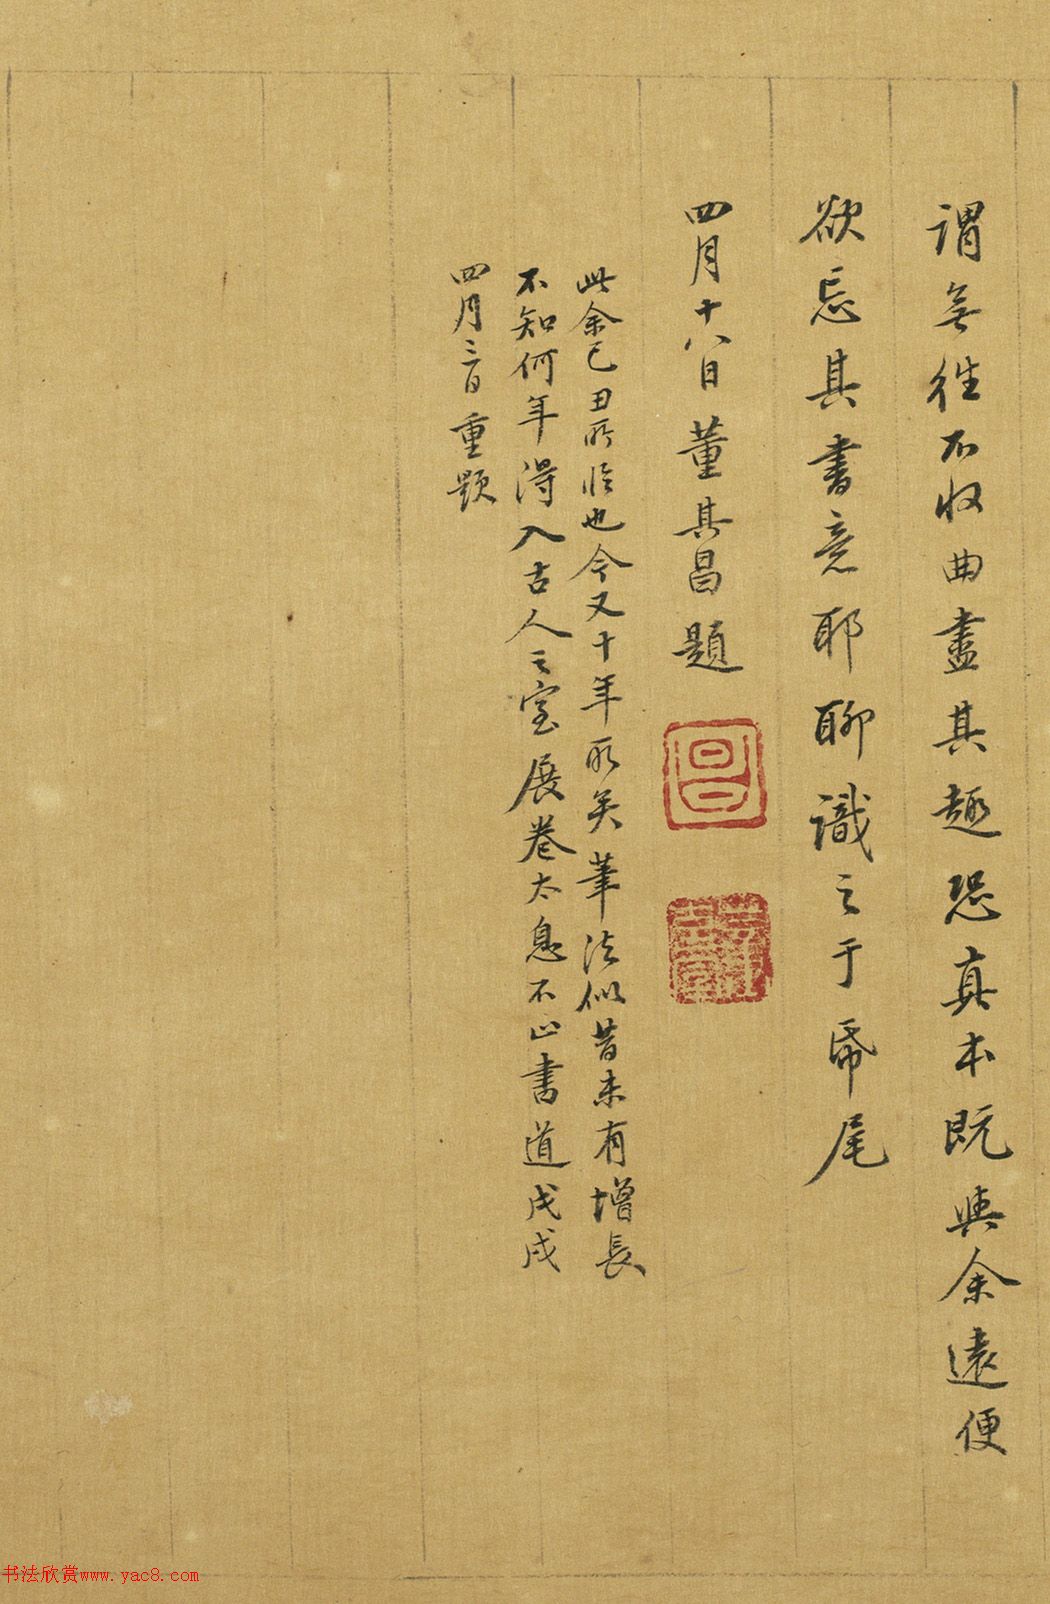 謂無往不收曲盡其趣恐真本既與余遠便
欲忘其書意耶聊識之于帋尾
四月十八日董其昌題
此余己丑所臨也今又十年所矣筆法似昔未有增長
不知何年得入古人之室展卷太息不止書道戊戌
四月三日重題
昌
书法欣赏www.yac8.com